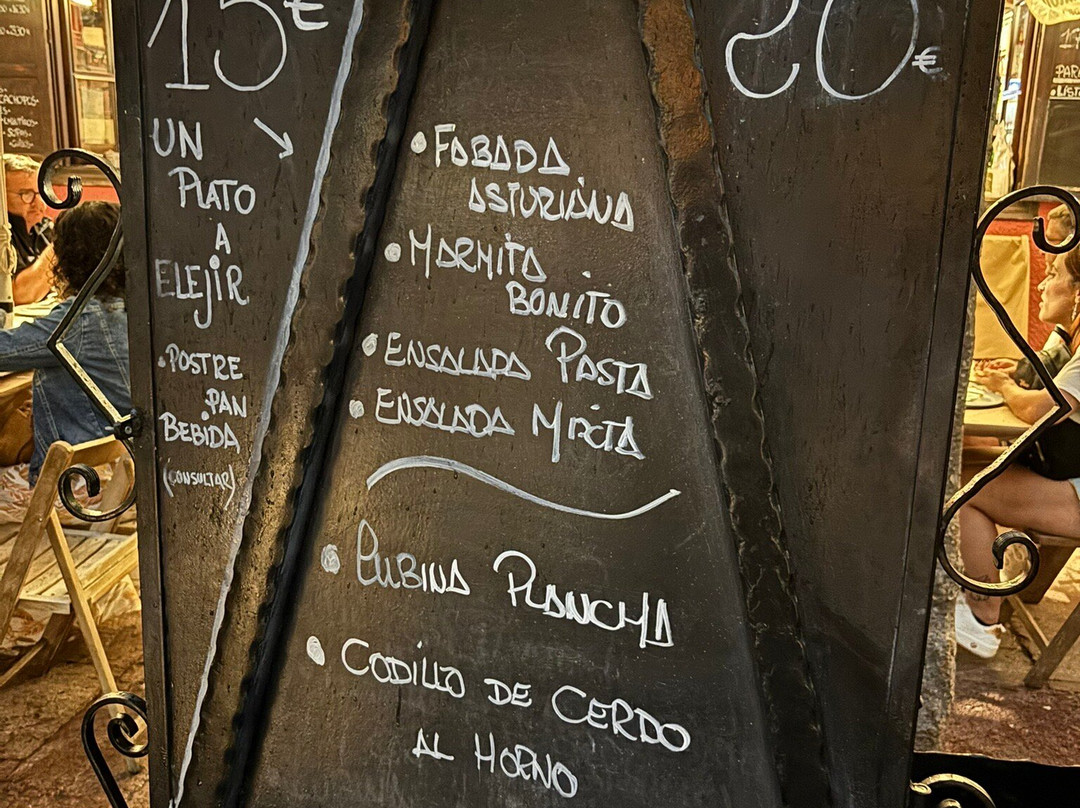 15€
UN
PLATO
A
ELEJIR
.POSTRE
.PAN
BEBIDA
(CONSULTAR)
• FABADA
ASTURIANA
• MARMITA
BONITO
• ENSALADA PASTA
• ENSALADA MIXTA
• LUBINA PLANCHA
• CODILLO DE CERDO
AL HORNO
20€